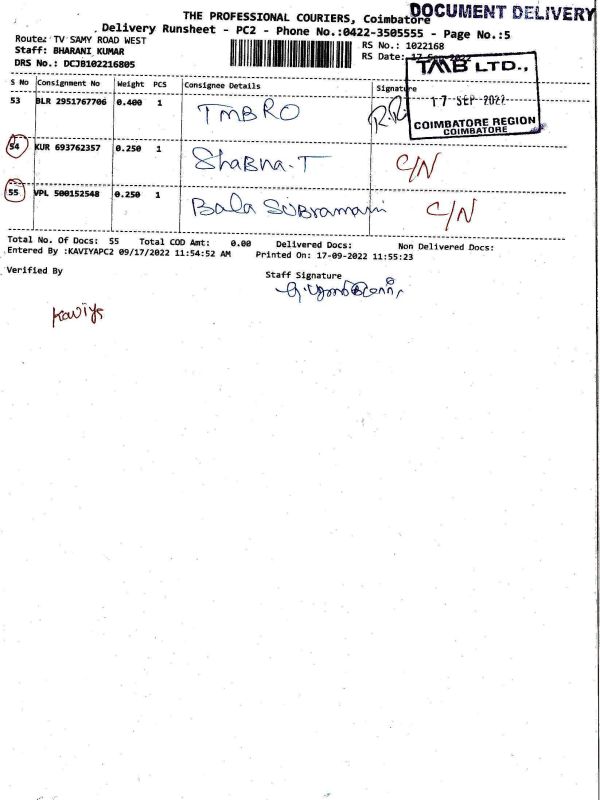 DOCUMENT DELIVERY
THE PROFESSIONAL COURIERS, Coimbatore
Delivery Runsheet - PC2 - Phone No.:0422-3505555 - Page No.:5
Route: TV SAMY ROAD WEST
RS No.: 1022168
Staff: BHARANI KUMAR
RS Date: 17 Sep 2022
DRS No.: DCJB102216805
TMB LTD.,
17 SEP 2022
COIMBATORE REGION
COIMBATORE
S No Consignment No Weight PCS Consignee Details Signature
53 BLR 2951767706 0.400 1 TMBRO
54 KUR 693762357 0.250 1 Shabna.T C/N
55 VPL 500152548 0.250 1 Bala Subramani C/N
Total No. Of Docs: 55 Total COD Amt: 0.00 Delivered Docs: Non Delivered Docs:
Entered By :KAVIYAPC2 09/17/2022 11:54:52 AM Printed On: 17-09-2022 11:55:23
Verified By
Staff Signature
Kaviya